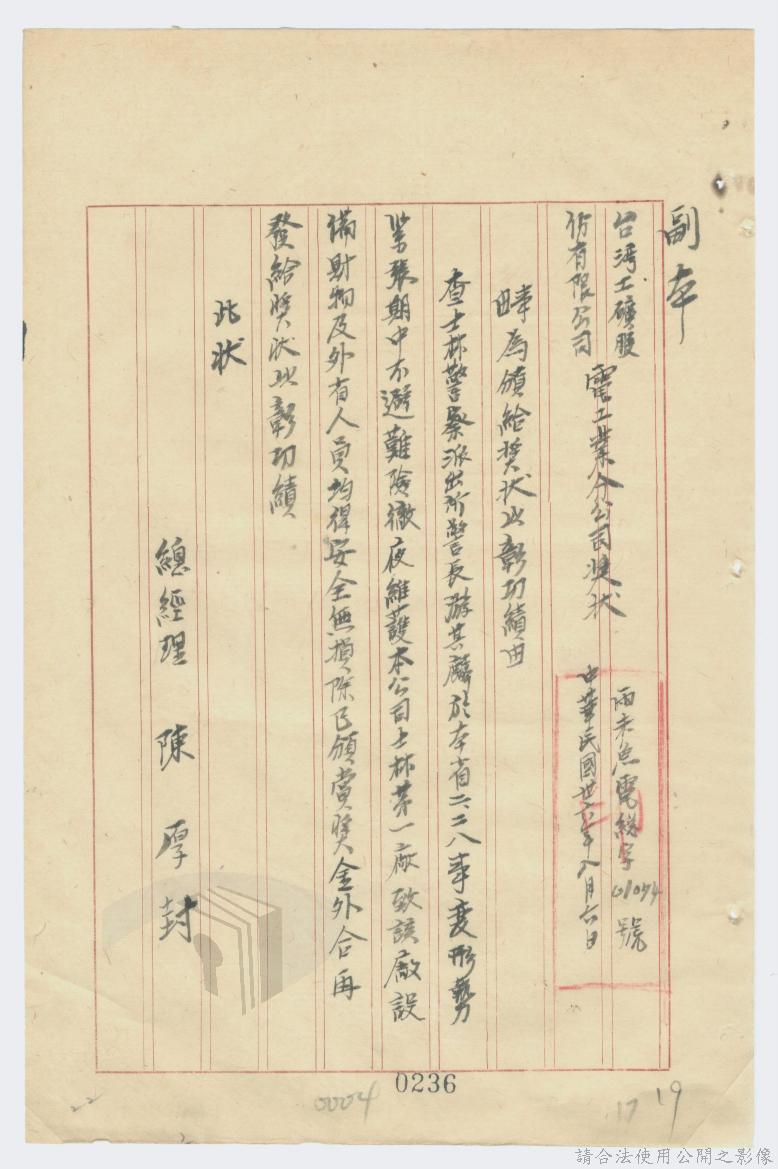 副本
台湾工礦股
份有限公司
電工業分公司奬状
丙未魚電總字01074號
中華民國卅六年八月六日
事為頒給奬状以彰功績由
查士林警察派出所警長游其麟於本省二二八事变形势
紧張期中不避難險徹夜維護本公司士林第一廠致該廠設
備財物及外省人員均得安全無損除已頒賞奬金外合再
發給奬状以彰功績
此状
總經理 陳厚封
0236
0004
22
17
19
請合法使用公開之影像